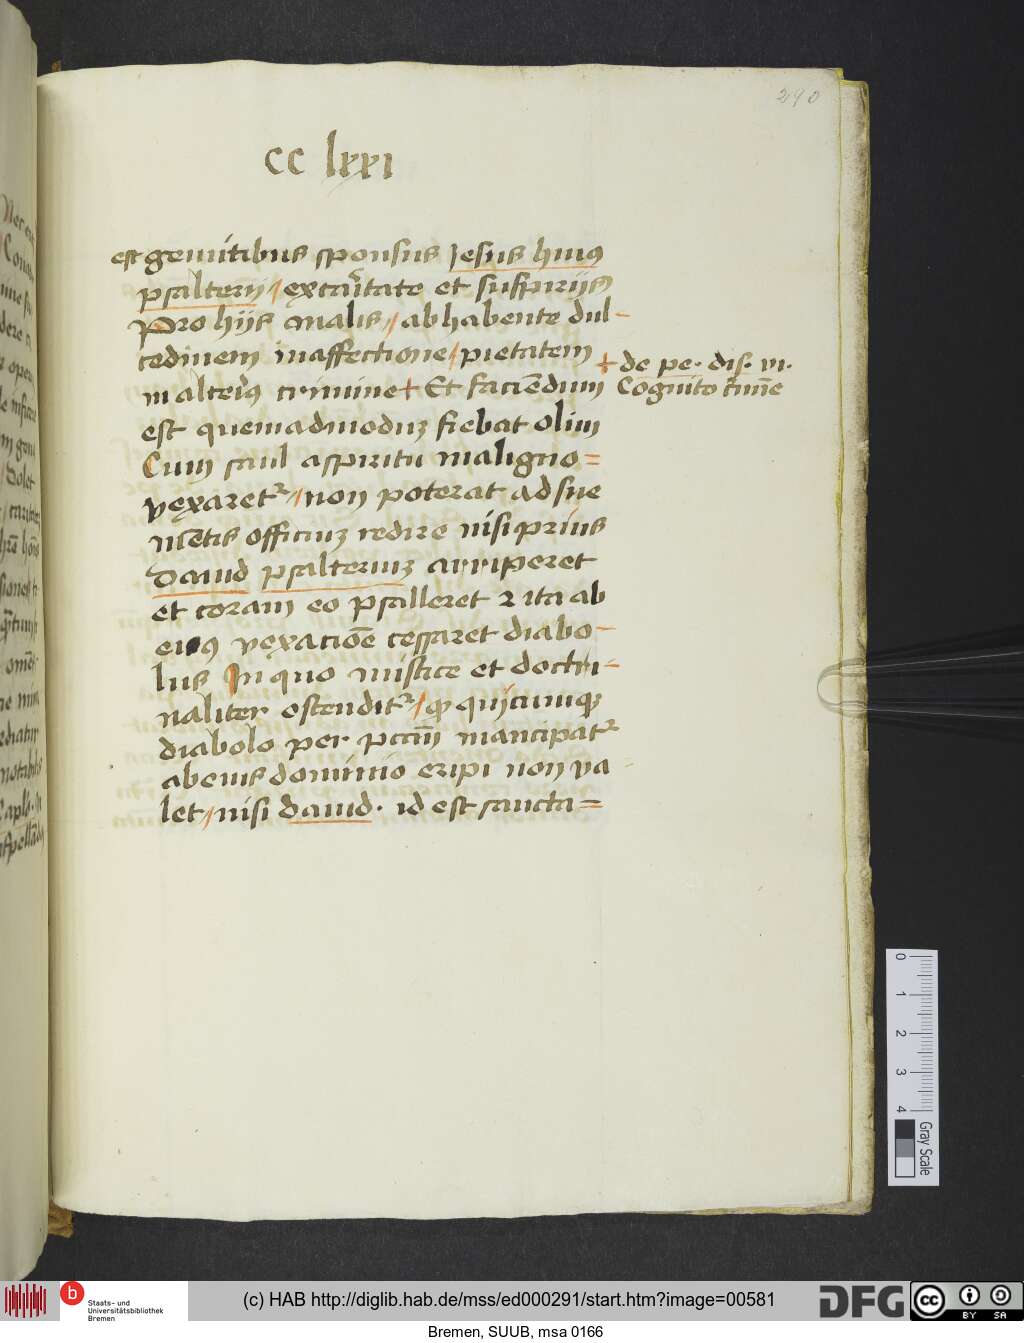 290
cc lxxi
est gemitibus sponsus Jesus huius
psalterij / ex caritate et suspirijs
Pro hijs malis / ab habente dul-
cedinem in affectione / pietatem
in alterius crimine + Et faciendum
+ de pe. dis. vi.
Cognito crimine
est quemadmodum fiebat olim
Cum saul a spiritu maligno =
vexaretur / non poterat ad sue
mentis officium redire nisi prius
David psalterium arriperet
et coram eo psalleret et ita ab
eius vexacione cessaret diabo-
lus In quo mistice et doctri-
naliter ostenditur / quod quicumque
diabolo per peccatum mancipatur
ab eius dominio eripi non va
let / nisi david. id est sancta =
0
1
2
3
4
Gray Scale
Staats- und
Universitätsbibliothek
Bremen
(c) HAB http://diglib.hab.de/mss/ed000291/start.htm?image=00581
DFG
cc
BY
SA
Bremen, SUUB, msa 0166